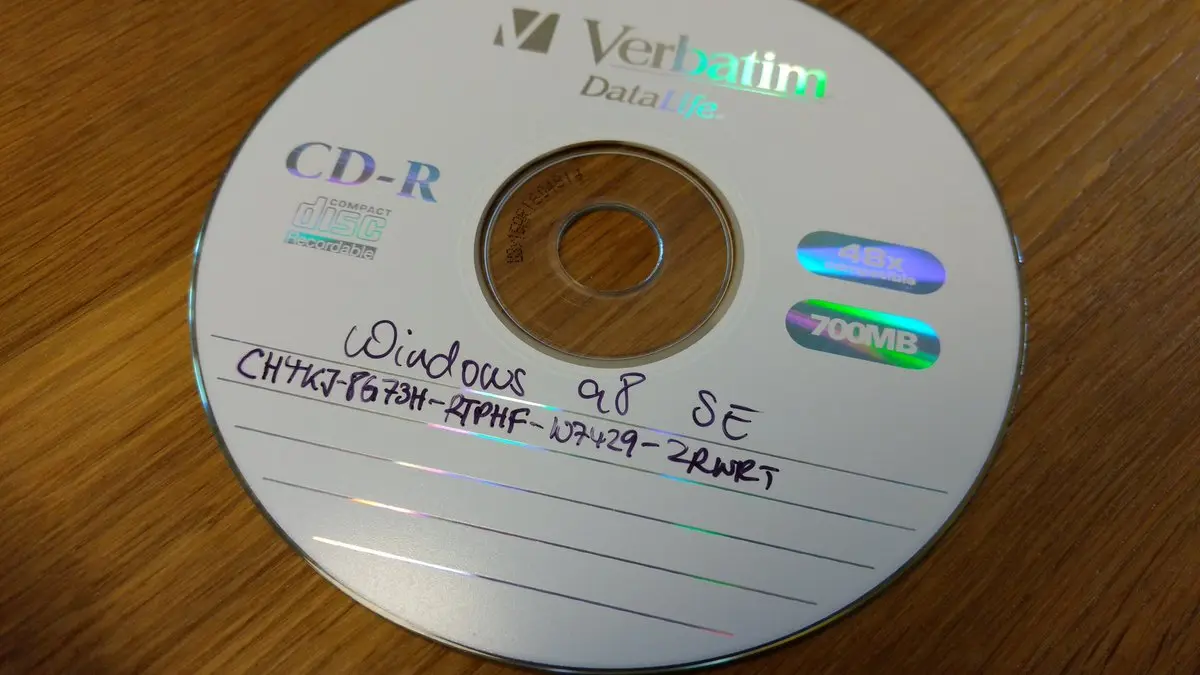 Verbatim
DataLife
CD-R
COMPACT
disc
Recordable
48x
Compatible
700MB
Windows 98 SE
CH4KJ-8G73H-RTPHF-W7429-2RWRT